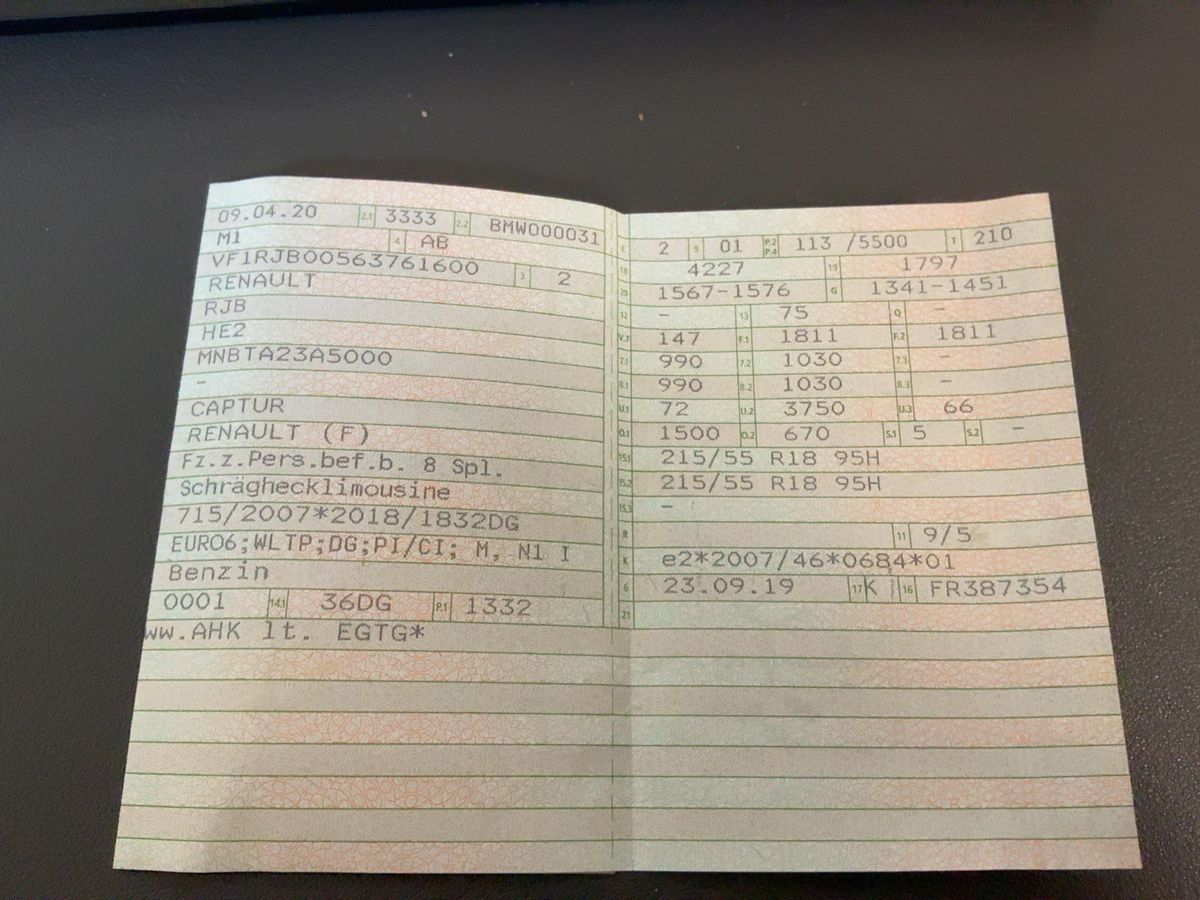 09.04.20 2.1 3333 2.2 BMW000031
M1 4 AB
VF1RJB00563761600 3 2
RENAULT
RJB
HE2
MNBTA23A5000
–
CAPTUR
RENAULT (F)
Fz.z.Pers.bef.b. 8 Spl.
Schräghecklimousine
715/2007*2018/1832DG
EURO6;WLTP;DG;PI/CI; M, N1 I
Benzin
0001 14.1 36DG P.1 1332
ww.AHK lt. EGTG*
L 2 9 01 P.2 P.4 113 /5500 T 210
18 4227 19 1797
20 1567-1576 G 1341-1451
12 – 13 75 Q –
V.7 147 F.1 1811 F.2 1811
7.1 990 7.2 1030 7.3 –
8.1 990 8.2 1030 8.3 –
U.1 72 U.2 3750 U.3 66
O.1 1500 O.2 670 S.1 5 S.2 –
15.1 215/55 R18 95H
15.2 215/55 R18 95H
15.3 –
R 11 9/5
K e2*2007/46*0684*01
6 23.09.19 17 K 16 FR387354
21